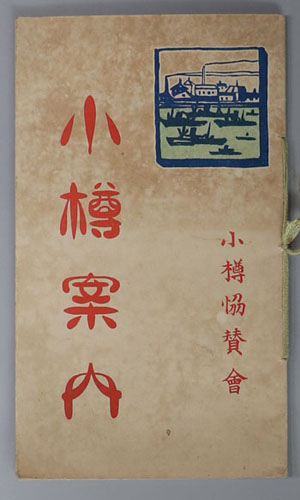 小樽案内
小樽協賛會